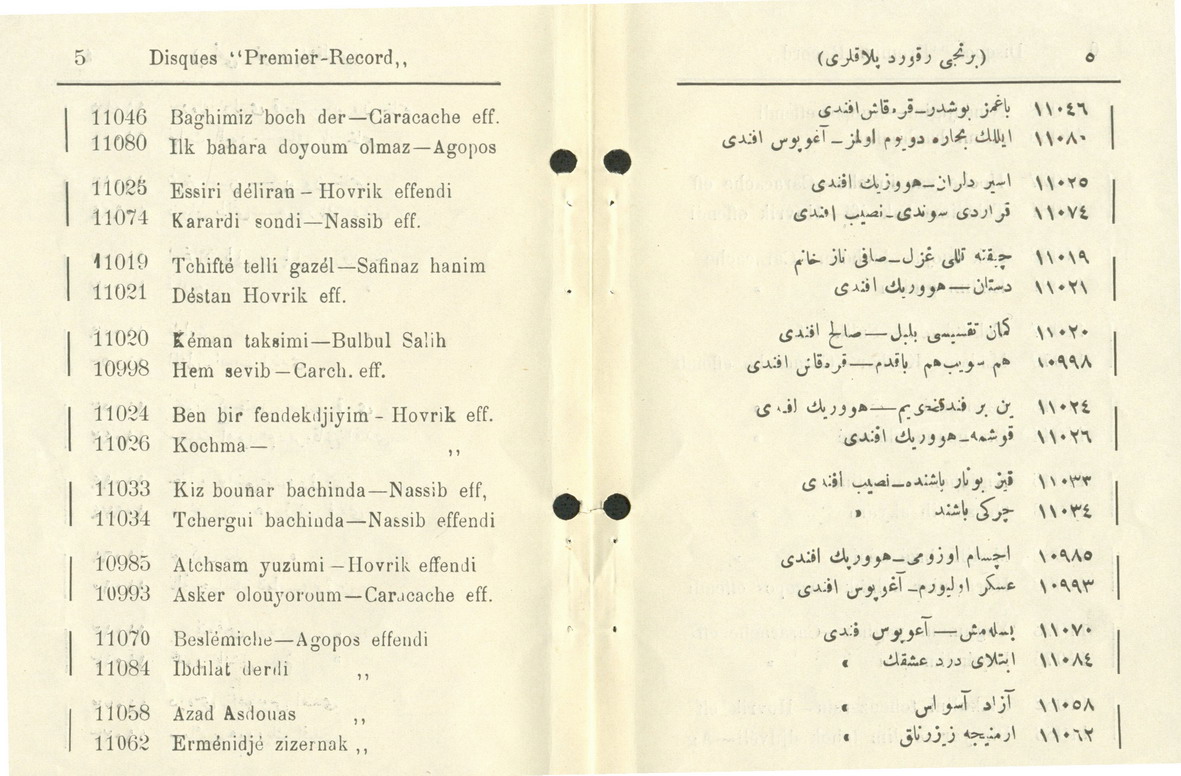 5 Disques “Premier-Record„
11046 Baghimiz boch der—Caracache eff.
11080 Ilk bahara doyoum olmaz—Agopos
11025 Essiri déliran – Hovrik effendi
11074 Karardi sondi—Nassib eff.
11019 Tchifté telli gazél—Safinaz hanim
11021 Déstan Hovrik eff.
11020 Kéman taksimi—Bulbul Salih
10998 Hem sevib—Carch. eff.
11024 Ben bir fendekdjiyim - Hovrik eff.
11026 Kochma— ,,
11033 Kiz bounar bachinda—Nassib eff,
11034 Tchergui bachinda—Nassib effendi
10985 Atchsam yuzumi—Hovrik effendi
10993 Asker olouyoroum—Caracache eff.
11070 Beslémiche—Agopos effendi
11084 Ibdilat derdi ,,
11058 Azad Asdouas ,,
11062 Erménidjé zizernak ,,
(برنجی رقورد پلاقلری) ٥
١١٠٤٦ باغمز بوشدر—قره قاش افندی
١١٠٨٠ ایلك بهاره دویوم اولمز—آغوپوس افندی
١١٠٢٥ اسیر دلران—هووریك افندی
١١٠٧٤ قراردی سوندی—نصیب افندی
١١٠١٩ چیفته تللی غزل—صافی ناز خانم
١١٠٢١ دستان—هووریك افندی
١١٠٢٠ كمان تقسیمی بلبل—صالح افندی
١٠٩٩٨ هم سویب هم باقدم—قره قاش افندی
١١٠٢٤ بن بر—هووریك افندی
١١٠٢٦ قوشمه—هووریك افندی
١١٠٣٣ قیز بوناز باشنده—نصیب افندی
١١٠٣٤ چركی باشند »
١٠٩٨٥ اچسام اوزومی—هووریك افندی
١٠٩٩٣ عسكر اولیورم—آغوپوس افندی
١١٠٧٠ بسله مش—آغوپوس فندی
١١٠٨٤ ابتلای درد عشقك »
١١٠٥٨ آزاد آسو اس »
١١٠٦٢ ارمنیجه زیزرناق »